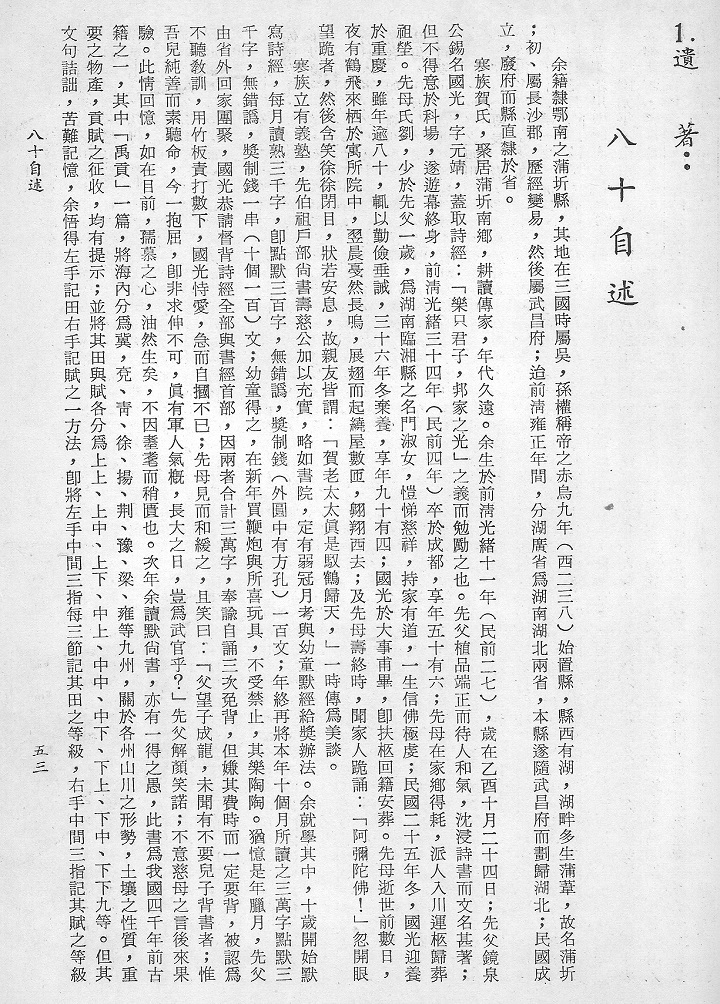 1.遺著：
八十自述
余籍隸鄂南之蒲圻縣，其地在三國時屬吳，孫權稱帝之赤烏九年（西二三八）始置縣，縣西有湖，湖畔多生蒲葦，故名蒲圻
；初、屬長沙郡，歷經變易，然後屬武昌府；迨前淸雍正年間，分湖廣省爲湖南湖北兩省，本縣遂隨武昌府而劃歸湖北；民國成
立，廢府而縣直隸於省。
寒族賀氏，聚居蒲圻南鄉，耕讀傳家，年代久遠。余生於前淸光緒十一年（民前二七），歲在乙酉十月二十四日；先父鏡泉
公錫名國光，字元靖，蓋取詩經：「樂只君子，邦家之光」之義而勉勵之也。先父植品端正而待人和氣，沈浸詩書而文名甚著；
但不得意於科場，遂遊幕終身，前淸光緒三十四年（民前四年）卒於成都，享年五十有六；先母在家鄉得耗，派人入川運柩歸葬
祖塋。先母氏劉，少於先父一歲，爲湖南臨湘縣之名門淑女，愷悌慈祥，持家有道，一生信佛極虔；民國二十五年冬，國光迎養
於重慶，雖年逾八十，輒以勤儉垂誡，三十六年冬棄養，享年九十有四；國光於大事甫畢，卽扶柩回籍安葬。先母逝世前數日，
夜有鶴飛來栖於寓所院中，翌晨戞然長鳴，展翅而起繞屋數匝，翱翔西去；及先母壽終時，聞家人跪誦：「阿彌陀佛！」忽開眼
望跪者，然後含笑徐徐閉目，狀若安息，故親友皆謂：「賀老太太眞是馭鶴歸天，」一時傳爲美談。
寒族立有義塾，先伯祖戶部尙書壽慈公加以充實，略如書院，定有弱冠月考與幼童默經給獎辦法。余就學其中，十歲開始默
寫詩經，每月讀熟三千字，卽點默三百字，無錯譌，獎制錢（外圓中有方孔）一百文；年終再將本年十個月所讀之三萬字點默三
千字，無錯譌，獎制錢一串（十個一百）文；幼童得之，在新年買鞭炮與所喜玩具，不受禁止，其樂陶陶。猶憶是年臘月，先父
由省外回家團聚，國光恭請督背詩經全部與書經首部，因兩者合計三萬字，奉諭自誦三次免背，但嫌其費時而一定要背，被認爲
不聽敎訓，用竹板責打數下，國光恃愛，急而自摑不已；先母見而和緩之，且笑曰：「父望子成龍，未聞有不要兒子背書者；惟
吾兒純善而素聽命，今一抱屈，卽非求伸不可，眞有軍人氣槪，長大之日，豈爲武官乎？」先父解顏笑諾；不意慈母之言後來果
驗。此情回憶，如在目前，孺慕之心，油然生矣，不因耄耋而稍匱也。次年余讀默尙書，亦有一得之愚，此書爲我國四千年前古
籍之一，其中「禹貢」一篇，將海內分爲冀，兗、靑、徐、揚、荆、豫、梁、雍等九州，關於各州山川之形勢，土壤之性質，重
要之物產，貢賦之征收，均有提示；並將其田與賦各分爲上上、上中、上下、中上、中中、中下、下上、下中、下下九等。但其
文句詰詘，苦難記憶，余悟得左手記田右手記賦之一方法，卽將左手中間三指每三節記其田之等級，右手中間三指記其賦之等級
八十自述
五三